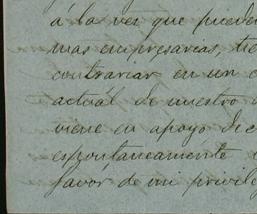 á la vez que pueden
mas empresarias, tie
contrariar en un c
actual de nuestro
viene en apoyo de c
espontáneamente
favor de mi privile